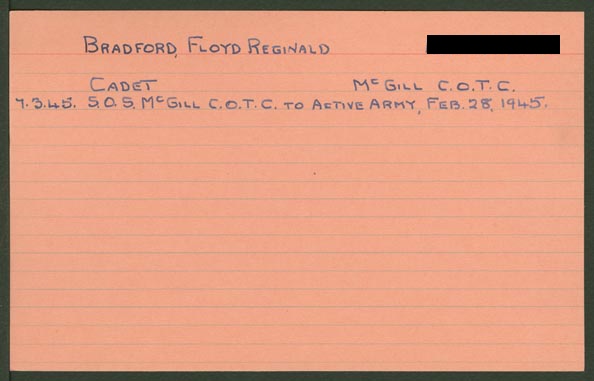 BRADFORD, FLOYD REGINALD
CADET McGILL C.O.T.C.
7.3.45. S.O.S. McGILL C.O.T.C. TO ACTIVE ARMY, FEB. 28, 1945.